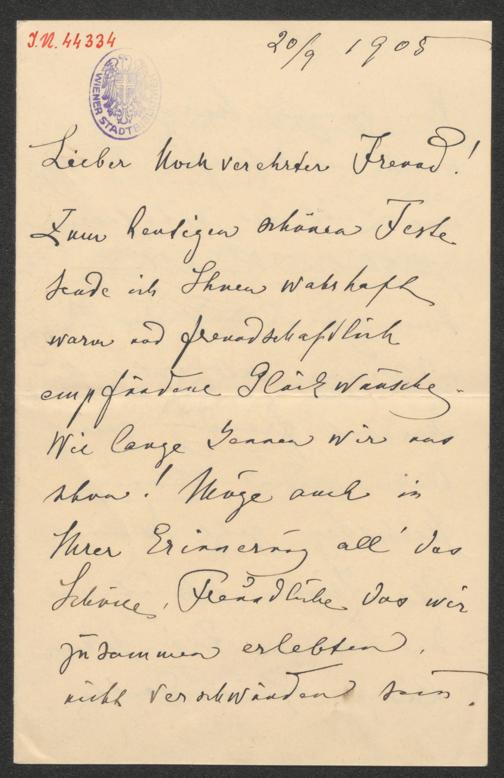 I.N. 44334
20/9 1908
WIENER STADTBIBLIOTHEK
Lieber Hochverehrter Freund!
Zum heutigen schönen Feste
sende ich Ihnen wahrhaft
warm und freundschaftlich
empfundene Glückwünsche.
Wie lange kennen wir uns
schon! Möge auch in
Ihrer Erinnerung all' das
Schöne, Freundliche das wir
zusammen erlebten,
nicht verschwunden sein.